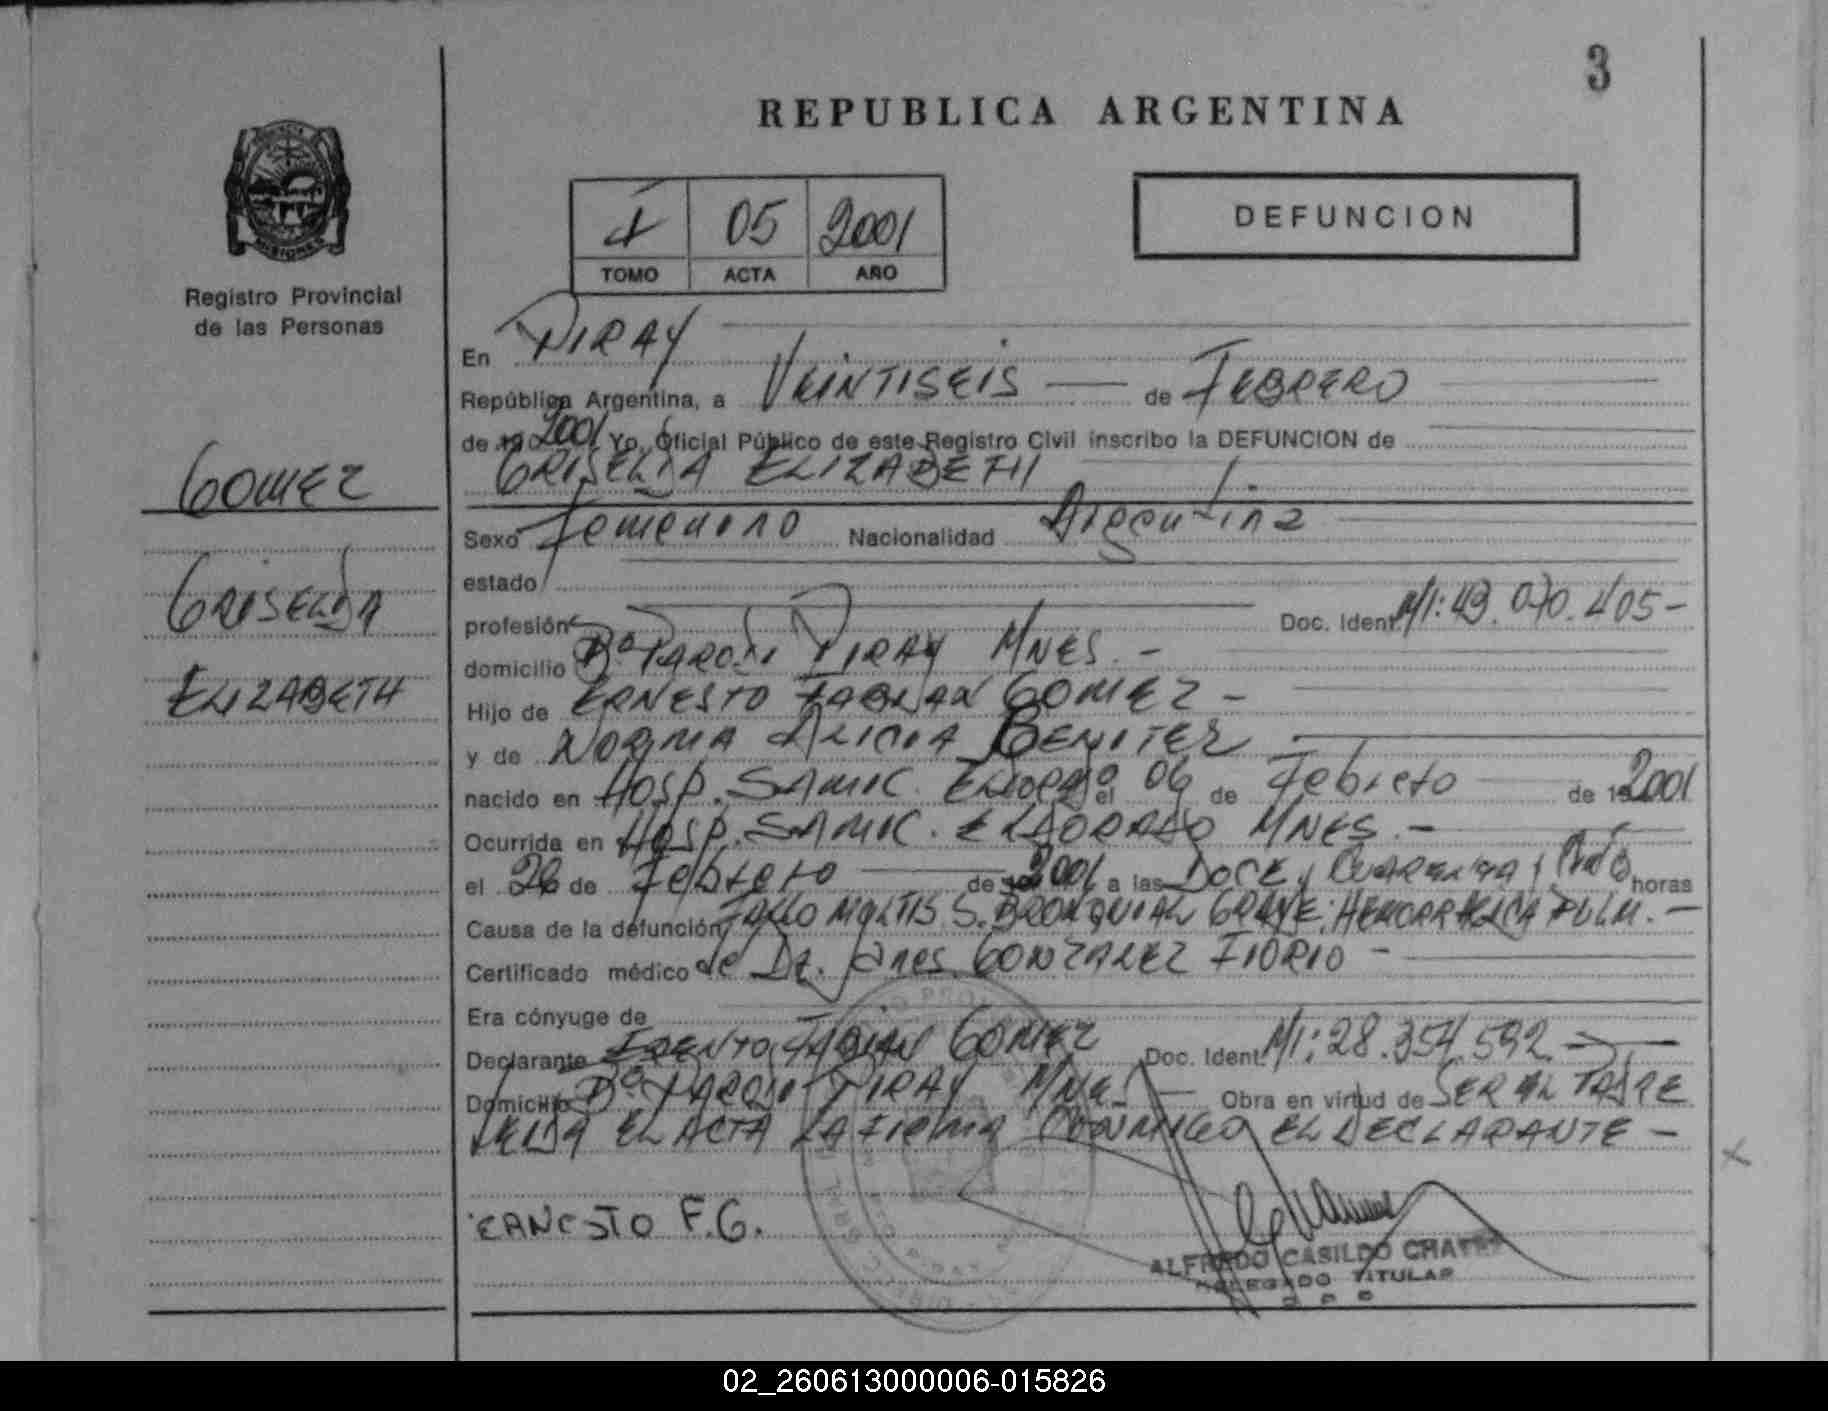 3
REPUBLICA ARGENTINA
I 05 2001
TOMO ACTA AÑO
DEFUNCION
Registro Provincial
de las Personas
GOMEZ
GRISELDA
ELIZABETH
En PIRAY
República Argentina, a VEINTISEIS de FEBRERO
de 2001 Yo, Oficial Público de este Registro Civil inscribo la DEFUNCION de
GRISELDA ELIZABETH
Sexo Femenino Nacionalidad Argentina
estado
profesión Doc. Ident. MI: 43.070.405-
domicilio Bº PARODI PIRAY MNES.-
Hijo de ERNESTO FABIAN GOMEZ-
y de NORMA ALICIA BENITEZ
nacido en HOSP. SAMIC. ELDORADO el 06 de Febrero de 2001
Ocurrida en HOSP. SAMIC. ELDORADO MNES.-
el 26 de Febrero de 2001 a las DOCE y CUARENTA y horas
Causa de la defunción FALLO S. BRONQUIAL GRAVE: PULM.-
Certificado médico de GONZALEZ FIORIO-
Era cónyuge de
Declarante FABIAN GOMEZ Doc. Ident. MI: 28.354.592
Domicilio Bº PARODI PIRAY MNES Obra en virtud de SER EL PADRE
LEIDA EL ACTA LA FIRMA CONMIGO EL DECLARANTE-
ERNESTO F.G.
ALFREDO CASILDO
DELEGADO TITULAR
02_260613000006-015826